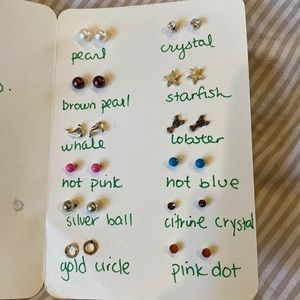 pearl
crystal
brown pearl
starfish
whale
lobster
hot pink
hot blue
silver ball
citrine crystal
gold circle
pink dot